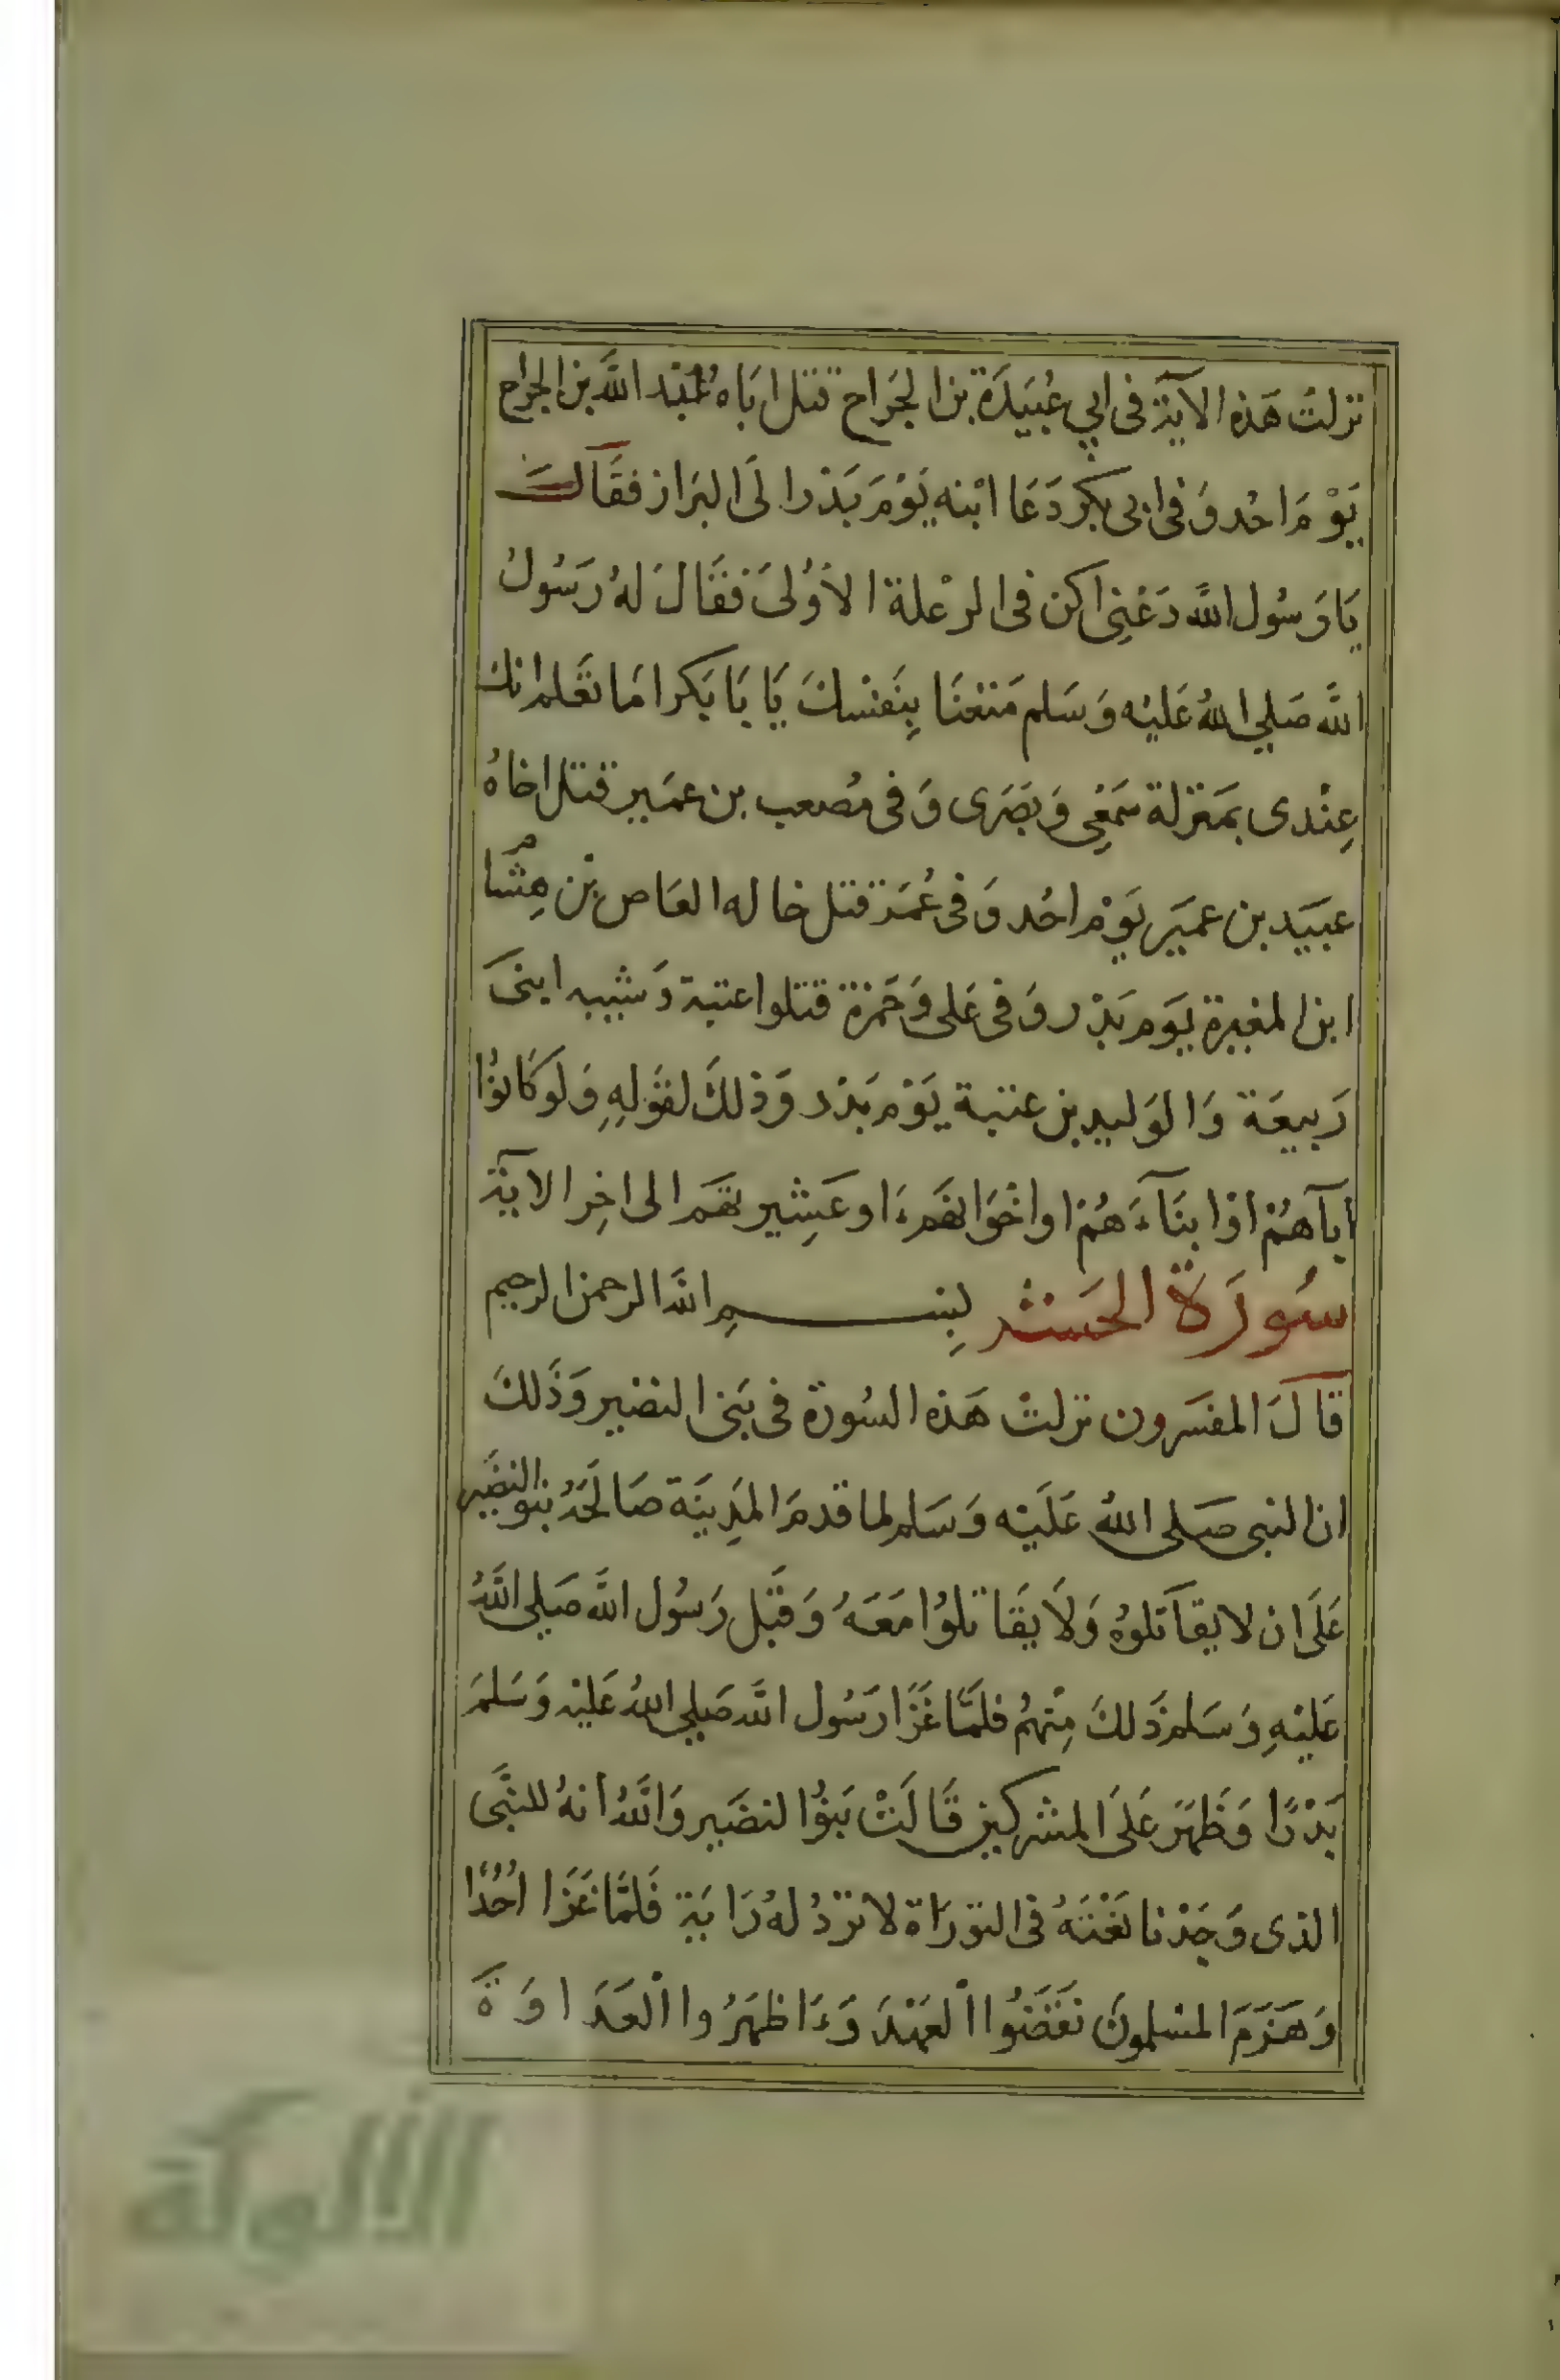 نزلت هَذه الآية فى ابي عُبَيدَة بن الجَراح قتل ابَاهُ عبد اللَّه بن الجراح
يَوْمَ احُد وَفى ابى بكر دَعَا ابْنه يَوْمَ بَدْر الَى البَراز فقَالَ
يَا رَسُول اللَّه دَعْنِى اكن فى الرعْلة الأوُلىَ فقَالَ لهُ رَسُولُ
اللَّه صَلي اللهُ عَليْه وَسَلم مَتعْنَا بِنَفْسكَ يَا بَا بَكر امَا تعَلم انك
عِنْدى بمَنزلة سَمْعِى وَبَصَرى وَفى مُصعب بن عمَير قتل اخاهُ
عبَيَد بن عمَير يَوْم احُد وَفى عُمَر قتل خاله العَاص بْن هِشَام
ابن المغيرة يَوم بَدْر وَفى عَلى وَحَمْزة قتلوا عتبة وَشيبه ابنىَ
رَبيعَة وَالوَليد بن عتبة يَوْم بَدْر وَذلكَ لقوَلِهِ وَلو كَانوُا
ابآهُمْ اوْ ابنَآءَهُمْ او اخْوَانهَم ءَاو عَشِيرتهَم الى اخِر الآية
سُورَة الحَشر بِسْمِ اللَّه الرحمن الرحيم
قَالَ المفسَرون نزلتْ هَذه السُورة فى بَنى النضير وَذَلكَ
ان النبى صَلى اللهُ عَلَيْه وَسَلم لما قدمَ المَدِينَة صَالحَهُ بنو النضَير
عَلَى ان لا يقاَتلوُه وَلاَ يقَاتلوُا مَعَهُ وَقَبل رَسُول اللَّه صَلي اللَّهُ
عَليْهِ وَسَلم ذَلكَ مِنْهمُ فلمَّا غَزَا رَسُول اللَّه صَلي اللهُ عَليْه وَسَلمَ
بَدْرًا وَظَهَرَ عَلىَ المشركين قَالَتْ بَنوُا لنضَير وَاللَّهُ انهُ للنَّبى
الذى وَجَدْنا نَعْتَهُ فى التورَاة لا تردُ لهُ رَايَة فَلمَّا غَزَا احُدًا
وَهَزَمَ المسْلمونَ نقَضَوُا الْعَهْدَ وَءَاظهَرُوا الْعَدَاوَةَ
الألوكة